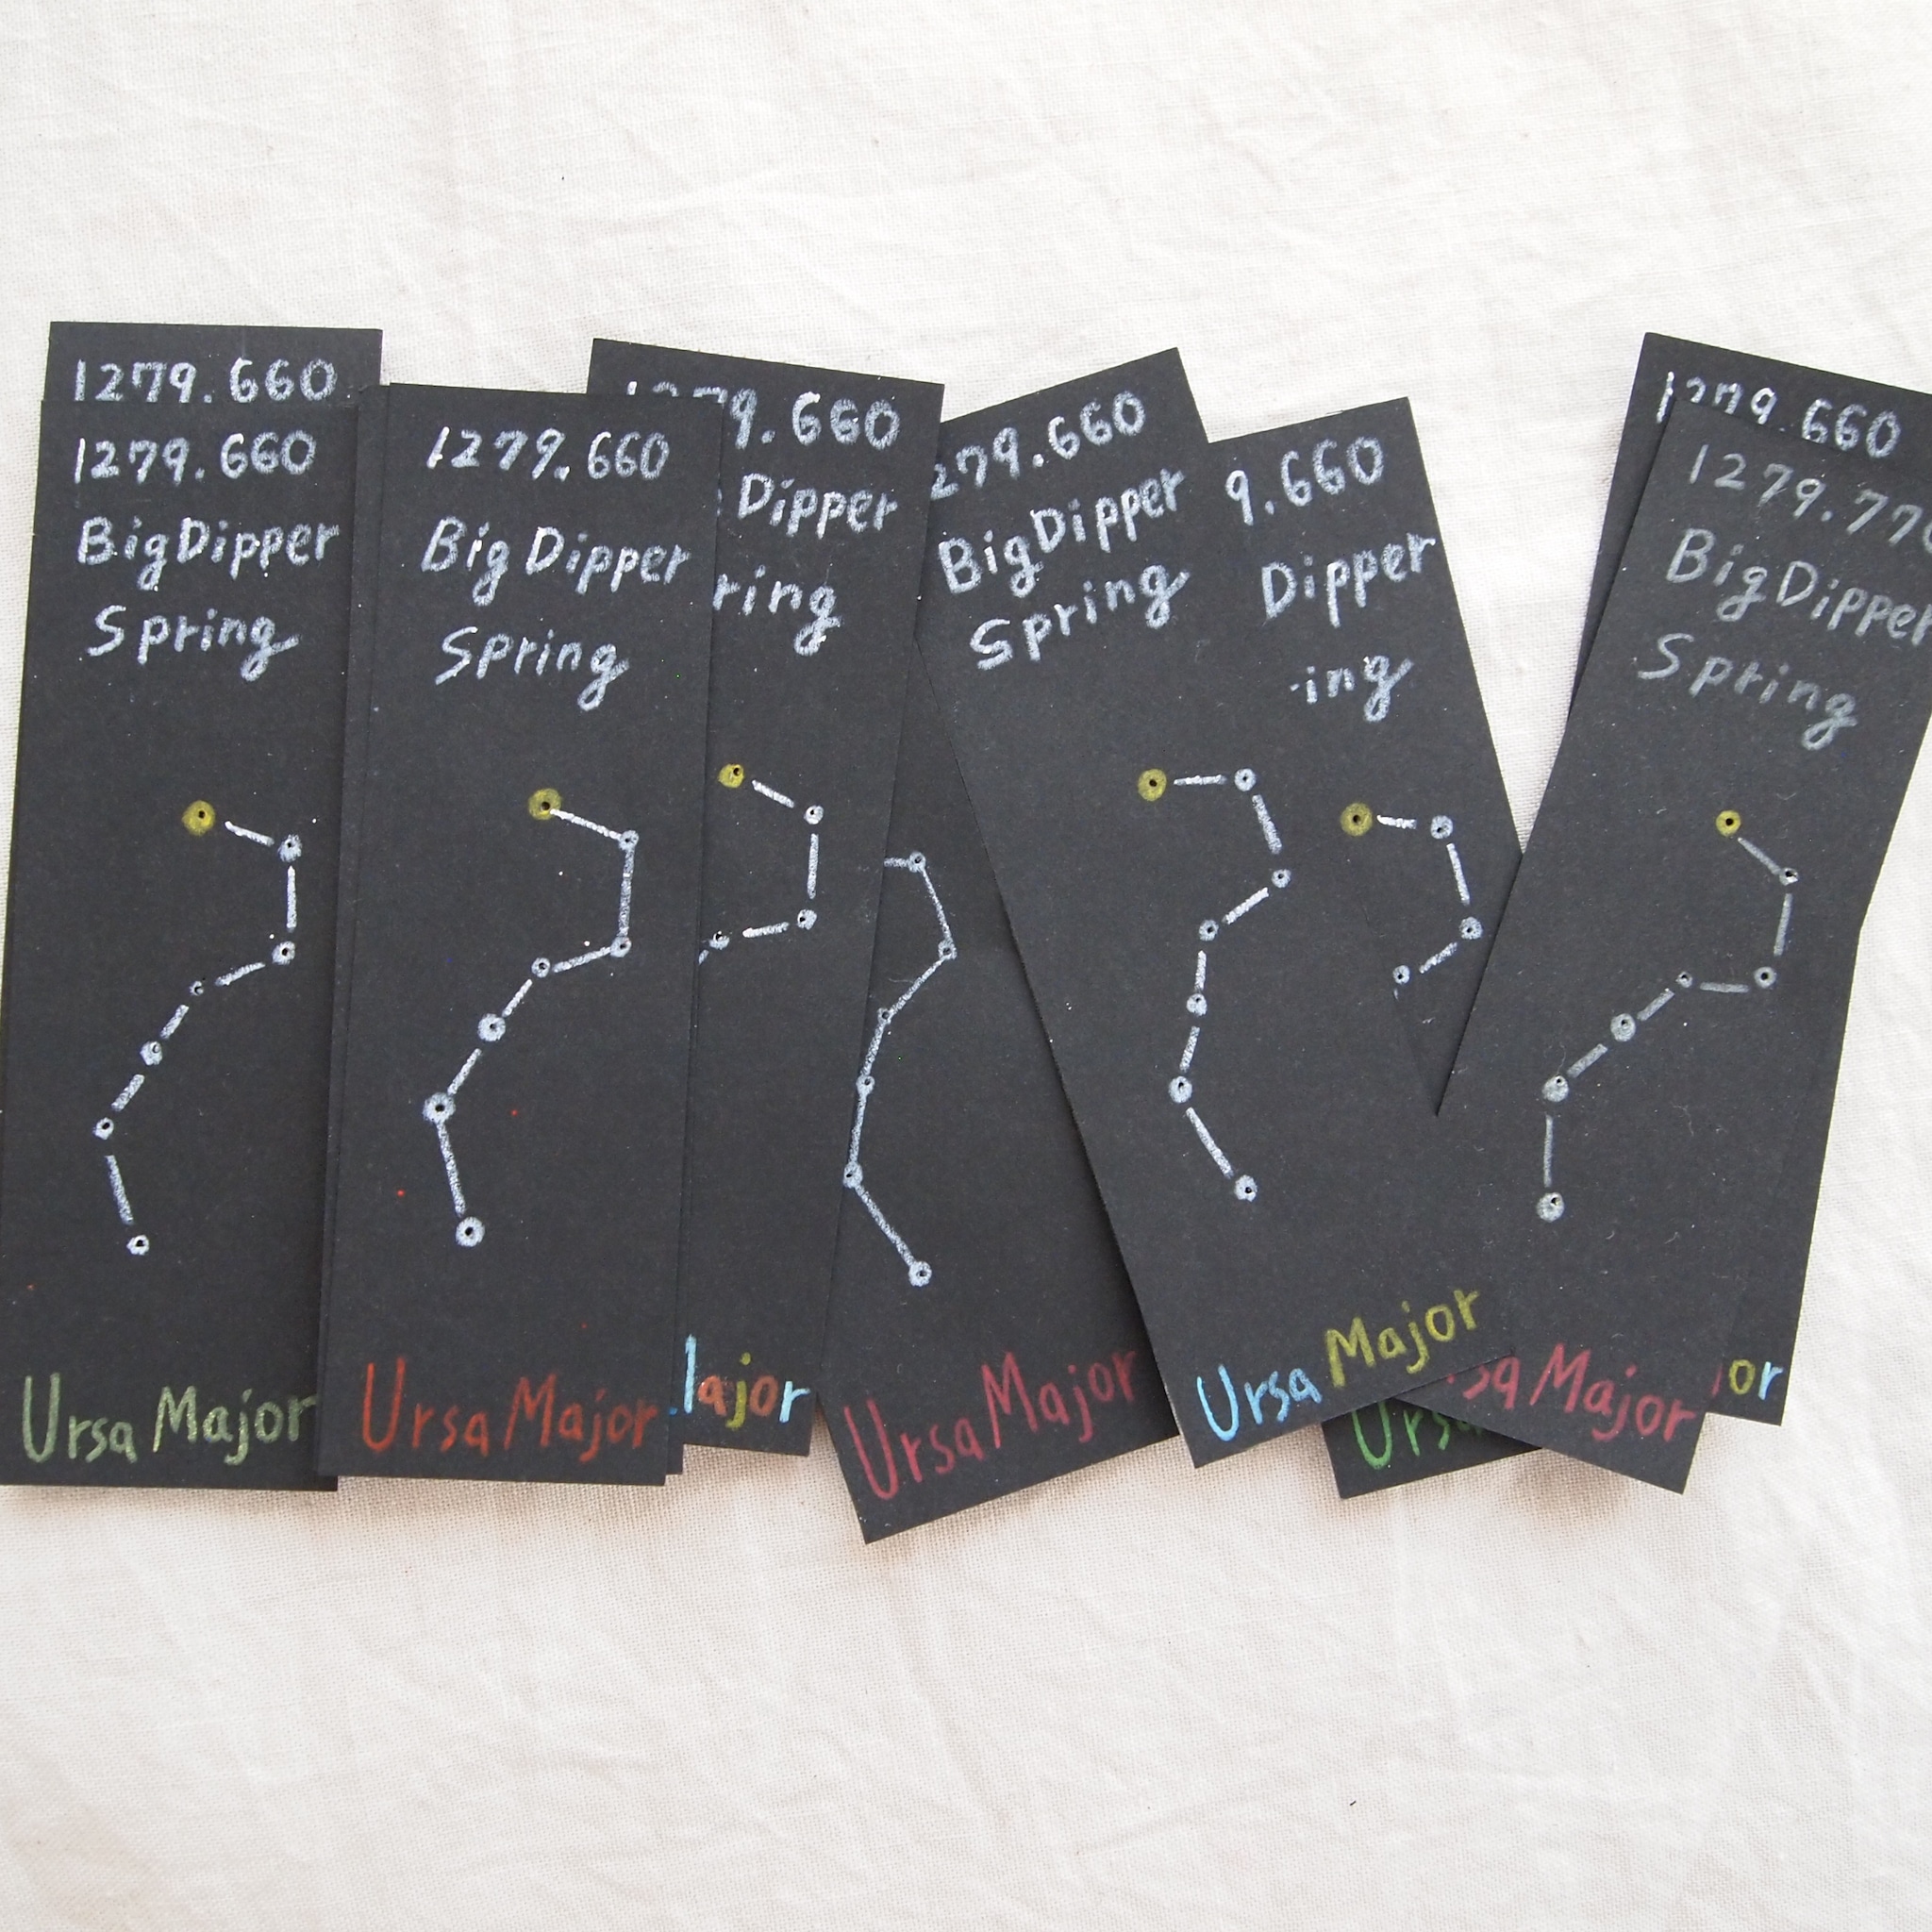 1279.660
1279.660
BigDipper
Spring
Ursa Major
1279.660
Big Dipper
Spring
Ursa Major
9.660
Dipper
ring
ajor
279.660
BigDipper
Spring
Ursa Major
Ursa Major
9.660
Dipper
ing
Ursa
1279.660
or
1279.770
BigDipper
Spring
sa Major